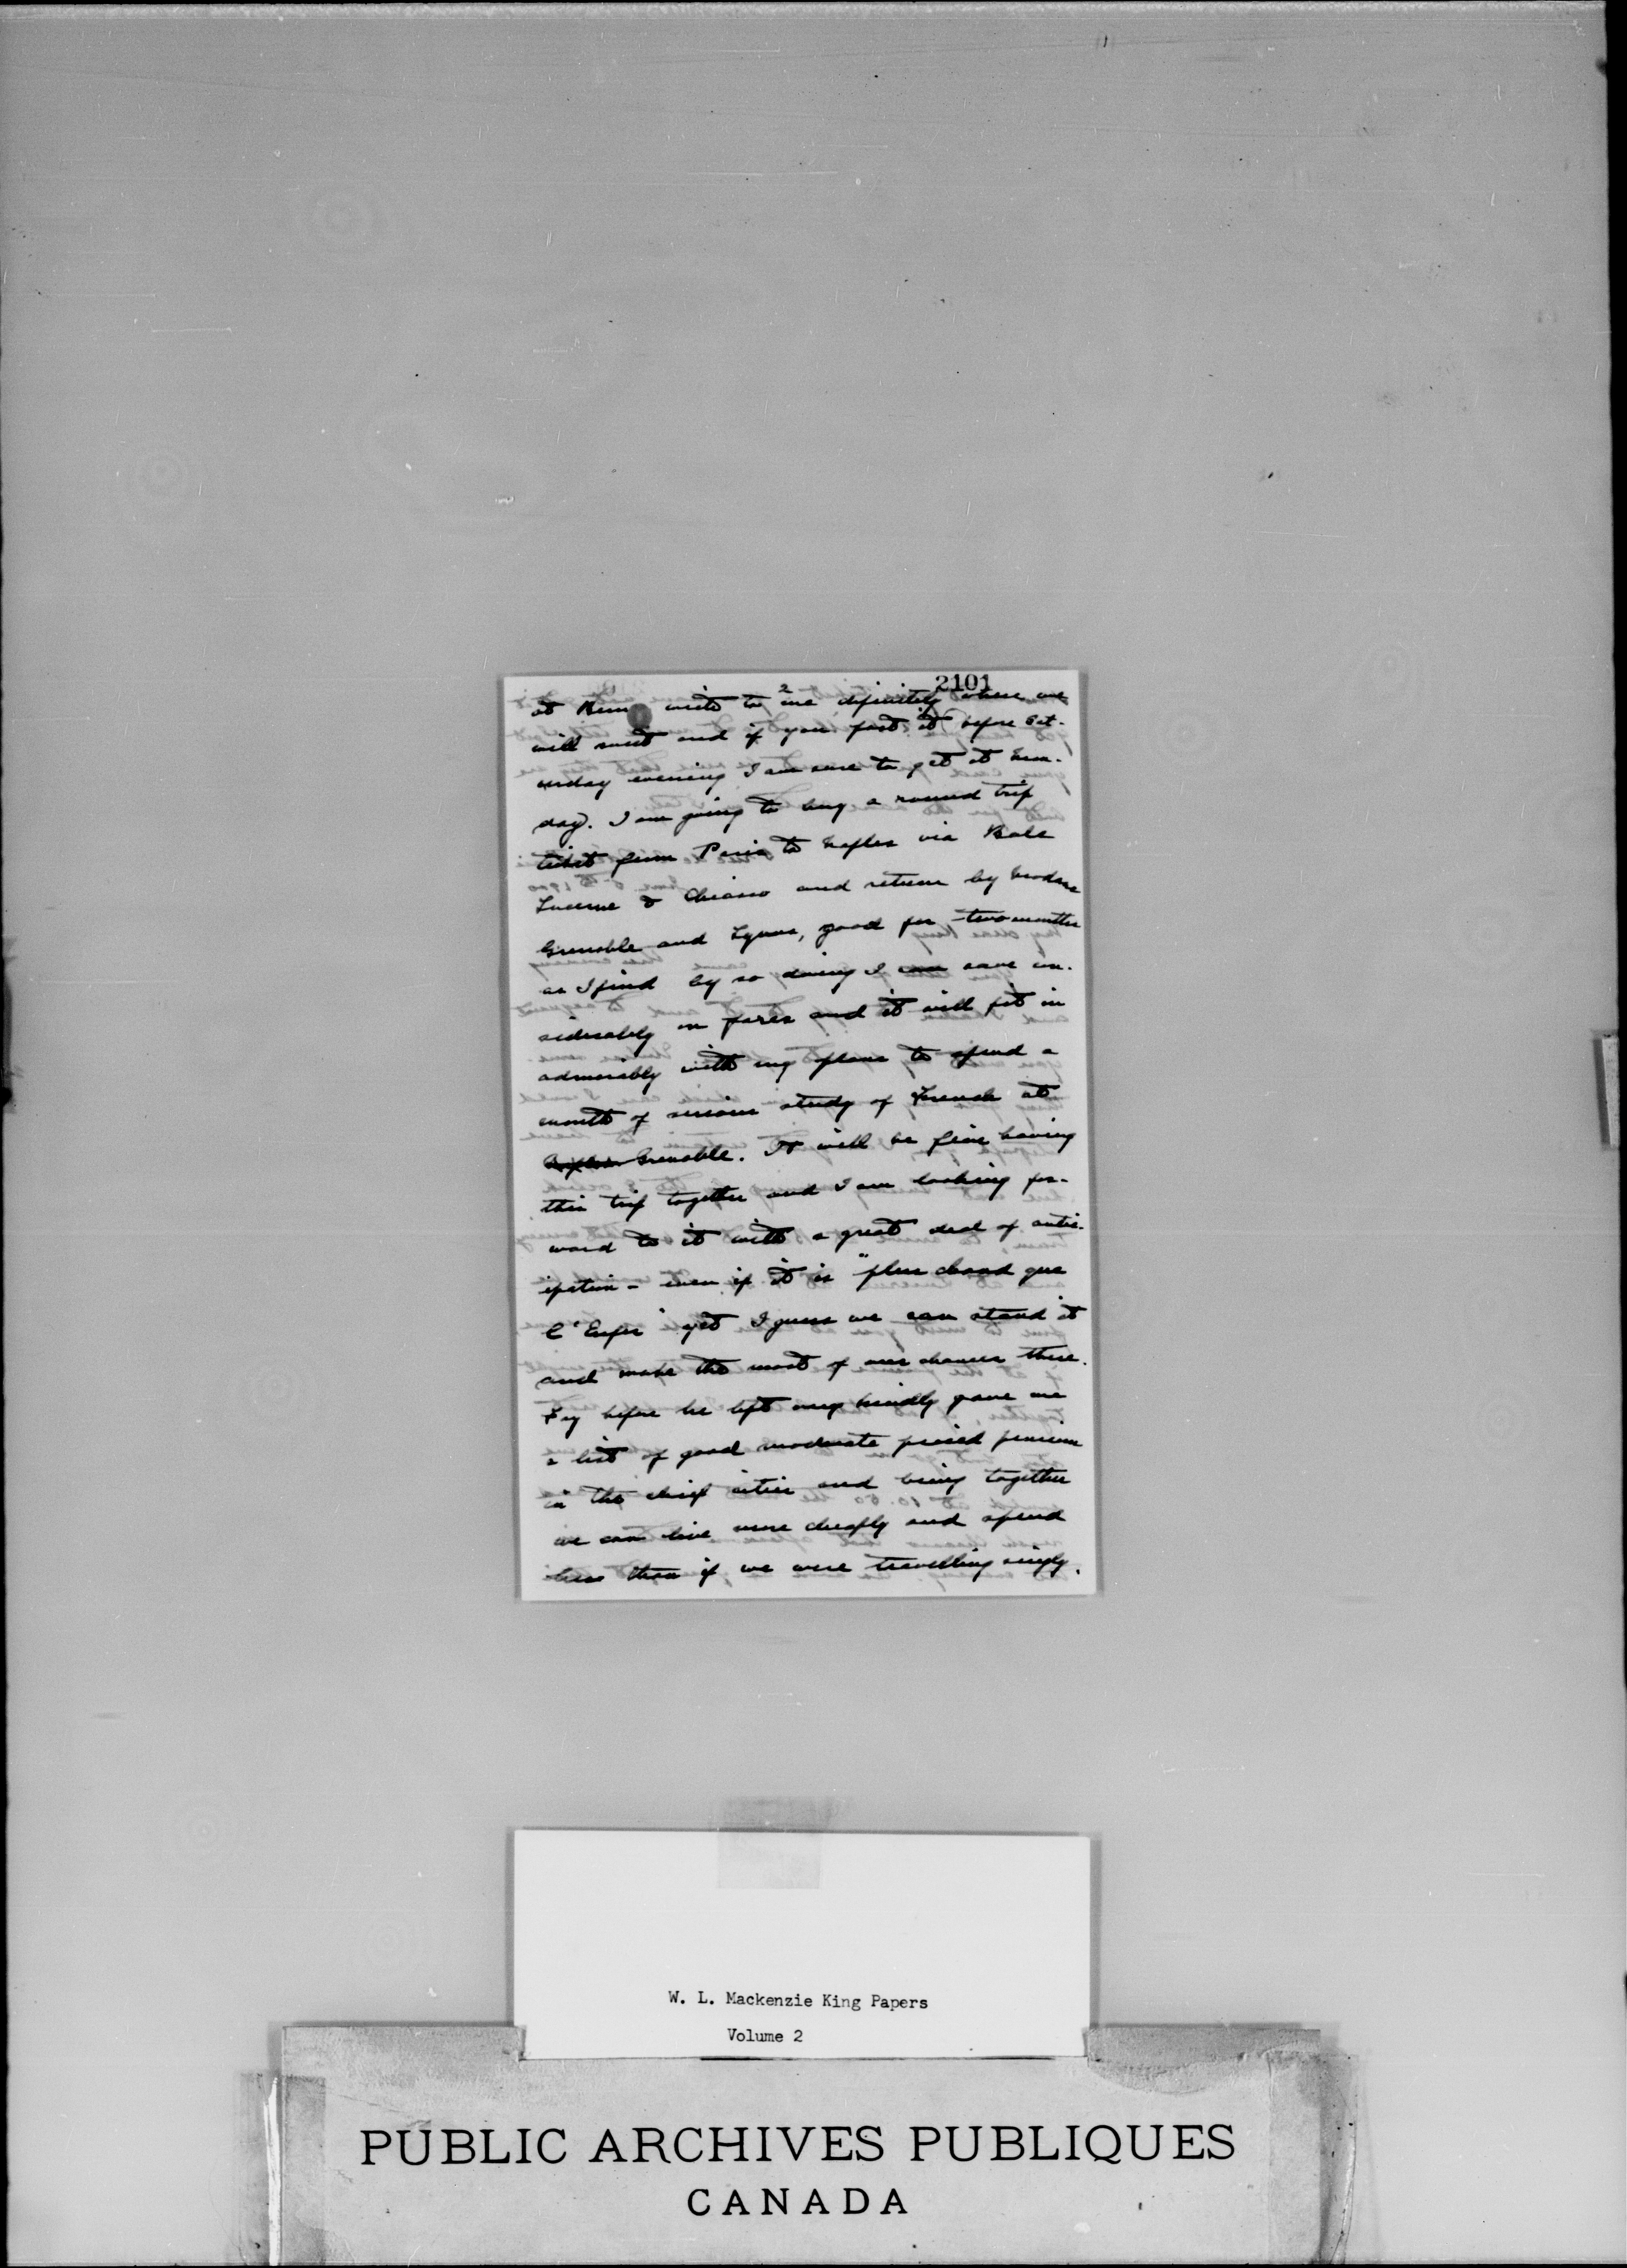 2101
2
at Bern write to me definitely where we
will meet and if you post it before Sat-
urday evening I am sure to get it Sun-
day. I am going to buy a round trip
ticket from Paris to Naples via Bale
Lucerne & Chiasso and return by Modane
Grenoble and Lyons, good for two months
as I find by so doing I can save con-
siderably on fares and it will fit in
admirably with my plans to spend a
month of serious study of French at
Grenoble. It will be fine having
this trip together and I am looking for-
ward to it with a great deal of antic-
ipation - even if it is "plus chaud que
l'Enfer" yet I guess we can stand it
and make the most of our chances there.
Fry before he left very kindly gave me
a list of good moderate priced pensions
in the chief cities and being together
we can live more cheaply and spend
less than if we were travelling singly.
W. L. Mackenzie King Papers
Volume 2
PUBLIC ARCHIVES PUBLIQUES
CANADA